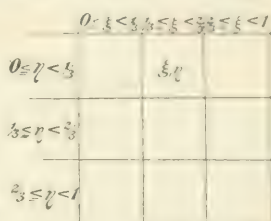 0≤ξ<⅓ ⅓≤ξ<⅔ ⅔≤ξ<1
0≤η<⅓
ξ,η
⅓≤η<⅔
⅔≤η<1